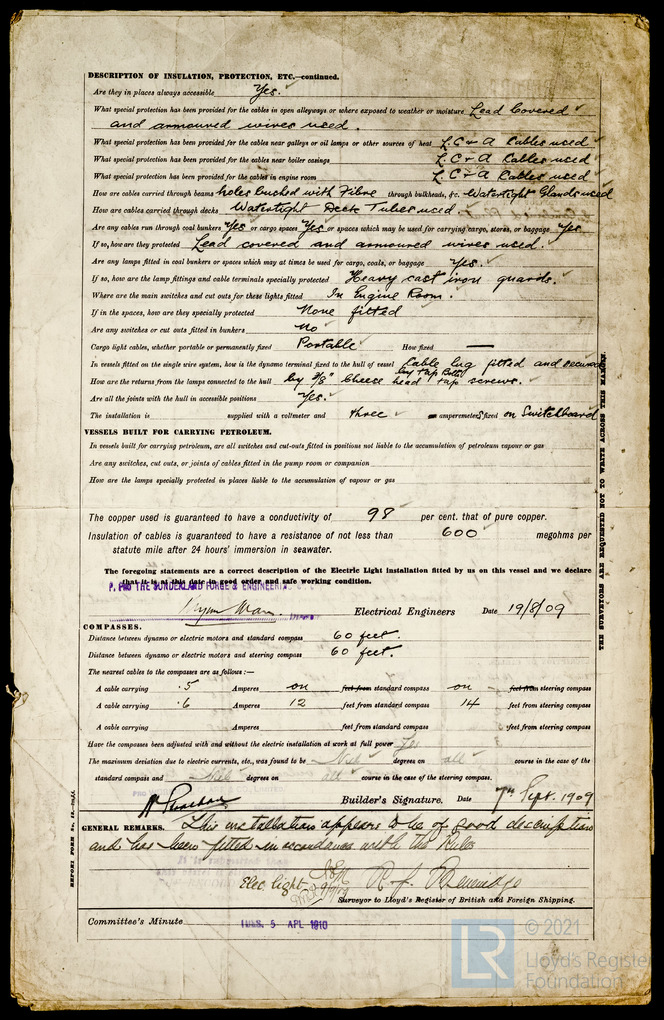 DESCRIPTION OF INSULATION, PROTECTION, ETC.—continued.
Are they in places always accessible Yes.
What special protection has been provided for the cables in open alleyways or where exposed to weather or moisture Lead Covered
and armoured wires used.
What special protection has been provided for the cables near galleys or oil lamps or other sources of heat L.C & A Cables used
What special protection has been provided for the cables near boiler casings L.C & A Cables used
What special protection has been provided for the cables in engine room L.C & A Cables used
How are cables carried through beams holes bushed with Fibre through bulkheads, &c. Watertight Glands used
How are cables carried through decks Watertight Deck Tubes used.
Are any cables run through coal bunkers Yes or cargo spaces Yes or spaces which may be used for carrying cargo, stores, or baggage Yes
If so, how are they protected Lead covered and armoured wires used.
Are any lamps fitted in coal bunkers or spaces which may at times be used for cargo, coals, or baggage Yes.
If so, how are the lamp fittings and cable terminals specially protected Heavy cast iron guards.
Where are the main switches and cut outs for these lights fitted In Engine Room.
If in the spaces, how are they specially protected None fitted
Are any switches or cut outs fitted in bunkers No
Cargo light cables, whether portable or permanently fixed Portable How fixed —
In vessels fitted on the single wire system, how is the dynamo terminal fixed to the hull of vessel Cable lug fitted and secured
by tap Bolts
How are the returns from the lamps connected to the hull by 3/8" Cheese head tap screws.
Are all the joints with the hull in accessible positions Yes.
The installation is supplied with a voltmeter and three amperemeters fixed on Switchboard
VESSELS BUILT FOR CARRYING PETROLEUM.
In vessels built for carrying petroleum, are all switches and cut-outs fitted in positions not liable to the accumulation of petroleum vapour or gas
Are any switches, cut outs, or joints of cables fitted in the pump room or companion
How are the lamps specially protected in places liable to the accumulation of vapour or gas
The copper used is guaranteed to have a conductivity of 98 per cent. that of pure copper.
Insulation of cables is guaranteed to have a resistance of not less than 600 megohms per
statute mile after 24 hours' immersion in seawater.
The foregoing statements are a correct description of the Electric Light installation fitted by us on this vessel and we declare
that it is at this date in good order and safe working condition.
P. PRO THE SUNDERLAND FORGE & ENGINEERING
Electrical Engineers Date 19/8/09
COMPASSES.
Distance between dynamo or electric motors and standard compass 60 feet.
Distance between dynamo or electric motors and steering compass 60 feet.
The nearest cables to the compasses are as follows:—
A cable carrying .5 Amperes on feet from standard compass on feet from steering compass
A cable carrying .6 Amperes 12 feet from standard compass 14 feet from steering compass
A cable carrying Amperes feet from standard compass feet from steering compass
Have the compasses been adjusted with and without the electric installation at work at full power Yes
The maximum deviation due to electric currents, etc., was found to be Nil degrees on all course in the case of the
standard compass and Nil degrees on all course in the case of the steering compass.
Builder's Signature. Date 7th Sept. 1909
GENERAL REMARKS. This installation appears to be of good description
and has been fitted in accordance with the Rules
Elec light
Surveyor to Lloyd's Register of British and Foreign Shipping.
Committee's Minute TUES. 5 APL 1910
THE SURVEYORS ARE REQUESTED NOT TO WRITE ACROSS THIS MARGIN.
© 2021
LR Lloyd's Register
Foundation